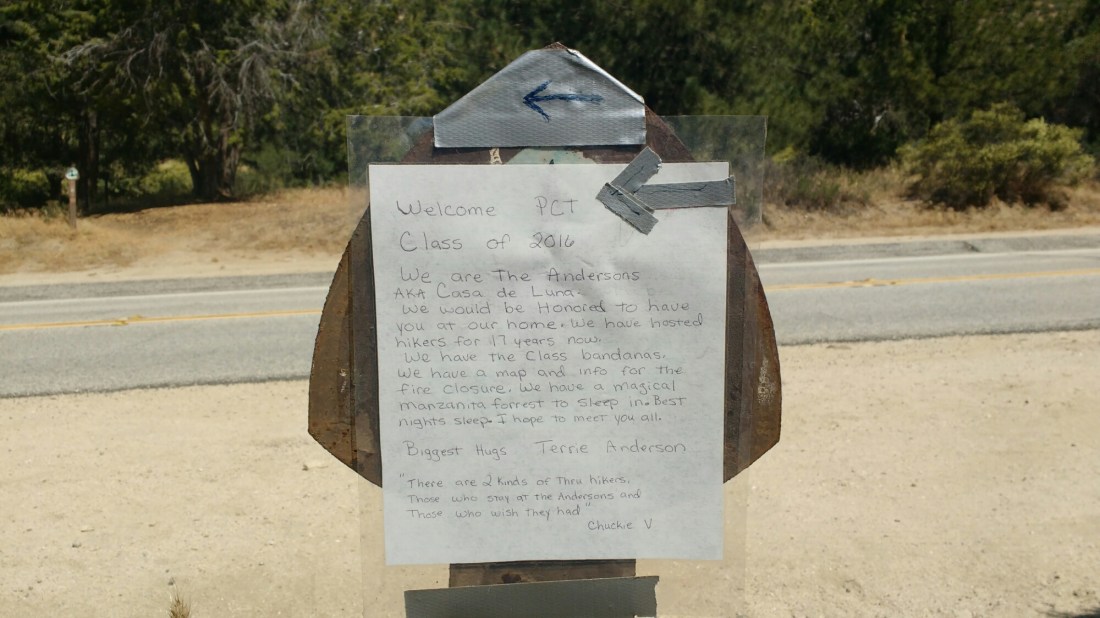 Welcome PCT
Class of 2016
We are The Andersons
AKA Casa de Luna.
We would be Honored to have
you at our home. We have hosted
hikers for 17 years now.
We have the Class bandanas.
We have a map and info for the
fire closure. We have a magical
manzanita forrest to sleep in. Best
nights sleep. I hope to meet you all.
Biggest Hugs Terrie Anderson
"There are 2 kinds of Thru hikers.
Those who stay at the Andersons and
Those who wish they had"
Chuckie V